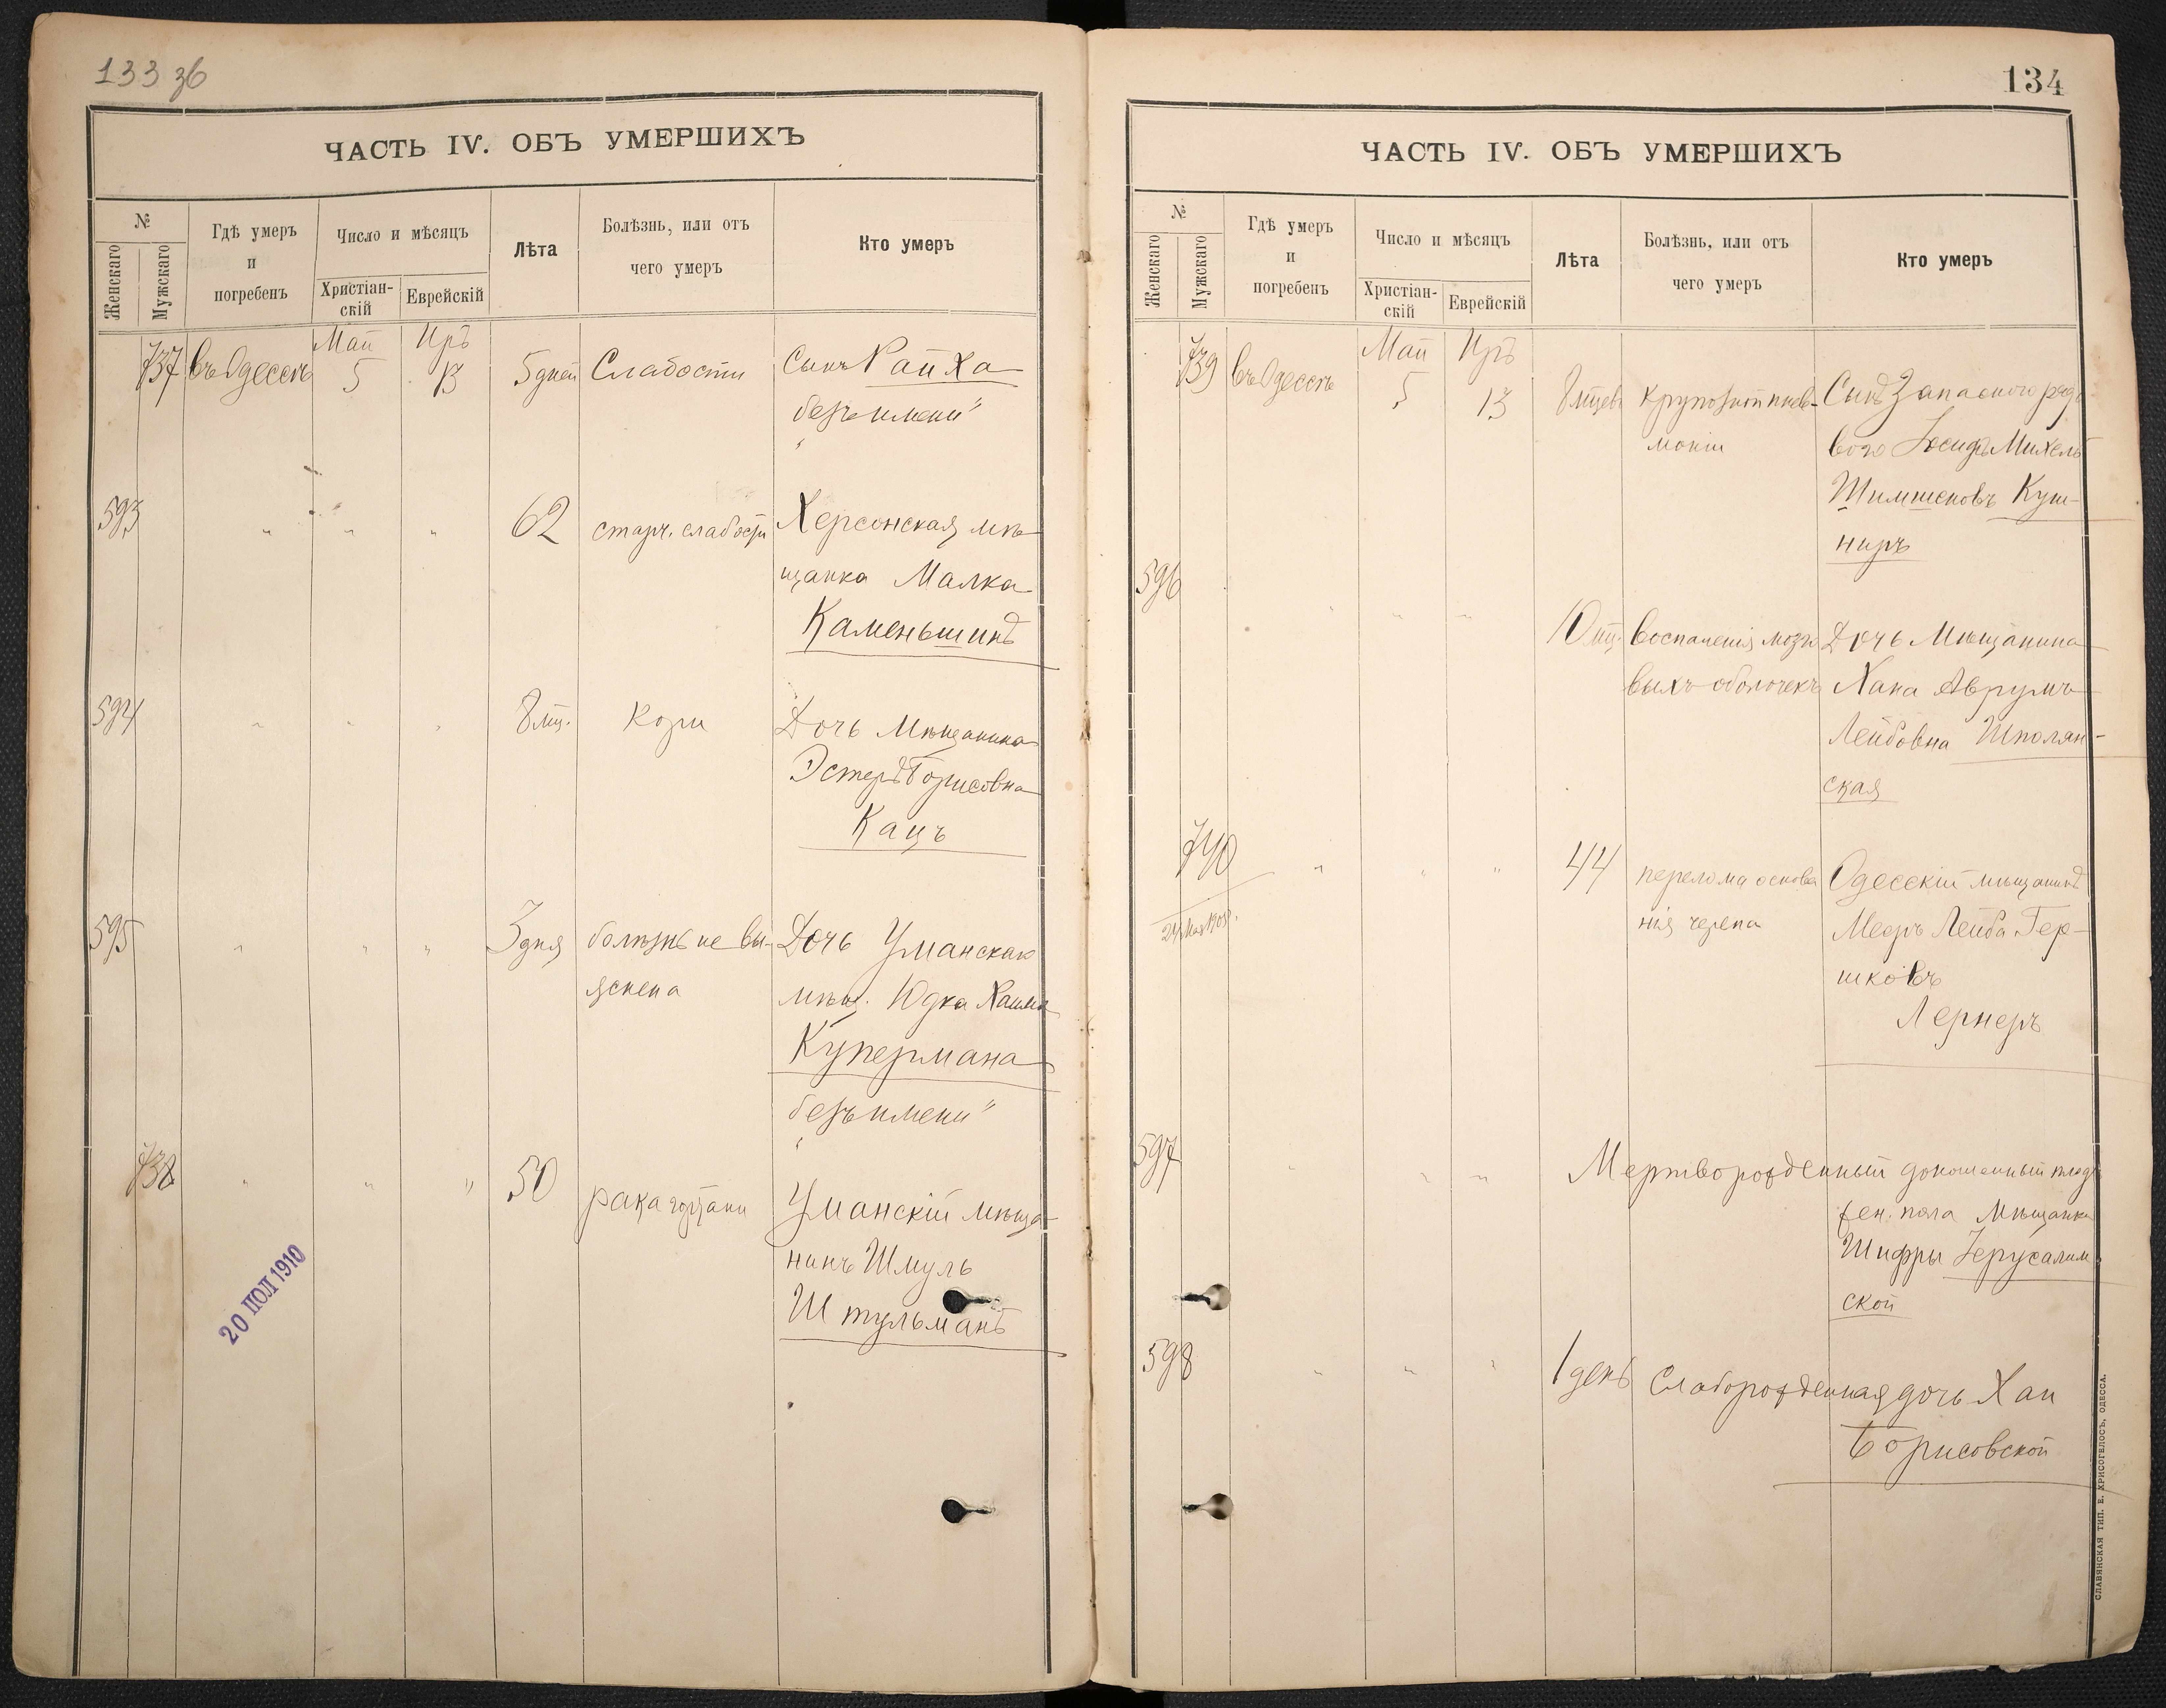 133 зб
ЧАСТЬ IV. ОБЪ УМЕРШИХЪ
№
Женскаго
Мужскаго
Гдѣ умеръ
и
погребенъ
Число и мѣсяцъ
Христіан-
скій
Еврейскій
Лѣта
Болѣзнь, или отъ
чего умеръ
Кто умеръ
Май Иръ
737 въ Одессѣ 5 13 5 дней Слабости Сынъ
безъ имени"
593 " " " 62 старч. слабости Херсонская мѣ-
щанка Малка
Каменьшинъ
594 " " " 8 мц. Кори Дочь Мѣщанина
Эстеръ Борисовна
Кацъ
595 " " " 3 дня болѣзнь не вы- Дочь Уманскаго
яснена мѣщ. Юдка
Купермана
безъ имени"
738 " " " 50 рака гортани Уманскій мѣща-
нинъ Шмуль
Штульманъ
20 ПОЛ 1910
134
ЧАСТЬ IV. ОБЪ УМЕРШИХЪ
№
Женскаго
Мужскаго
Гдѣ умеръ
и
погребенъ
Число и мѣсяцъ
Христіан-
скій
Еврейскій
Лѣта
Болѣзнь, или отъ
чего умеръ
Кто умеръ
Май Иръ
739 въ Одессѣ 5 13 8 мцевъ крупозной пнев- Сынъ Запасного рядо
моніи вого Іосифъ Михель
Шимшеновъ Куш-
ниръ
596 " " " 10 мц. воспаленія мозго Дочь Мѣщанина
выхъ оболочекъ Хана Аврумъ
Лейбовна Шполян-
ская
740 " " " 44 перелома основа Одесскій мѣщанинъ
нія черепа Мееръ Лейба Гер-
шковъ
Лернеръ
597 " " " Мертворожденный доношенный плодъ
жен. пола Мѣщанки
Шифры Іерусалим-
ской
598 " " " 1 день Слаборожденная дочь Хаи
Борисовской
СЛАВЯНСКАЯ ТИП. Е. ХРИСОГЕЛОСЪ, ОДЕССА.